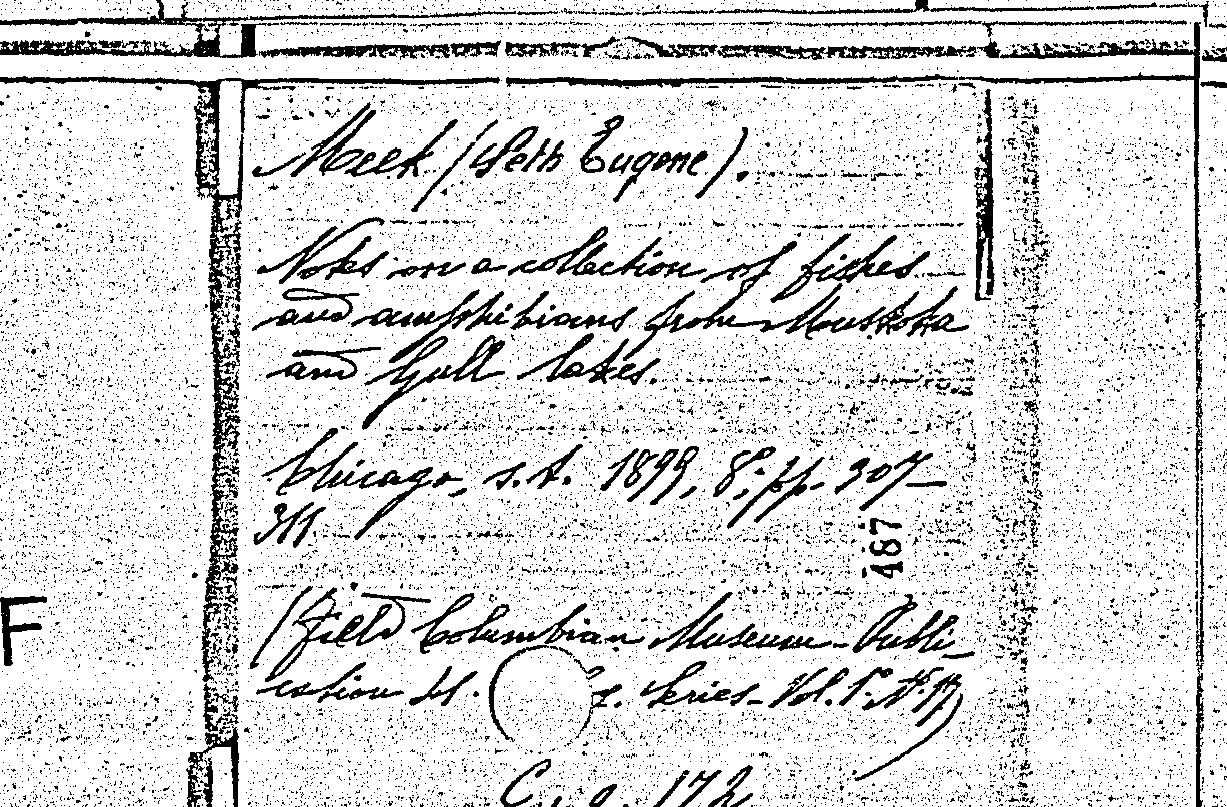 Meek (Seth Eugene).
Notes on a collection of fishes
and amphibians from Muskoka
and Gull lakes.
Chicago, s.t. 1899, 8°, pp. 307—
311.
487
(Field Columbian Museum - Publi-
cation 41. Series - Vol. I. N. 17)
F
C. 9. 172